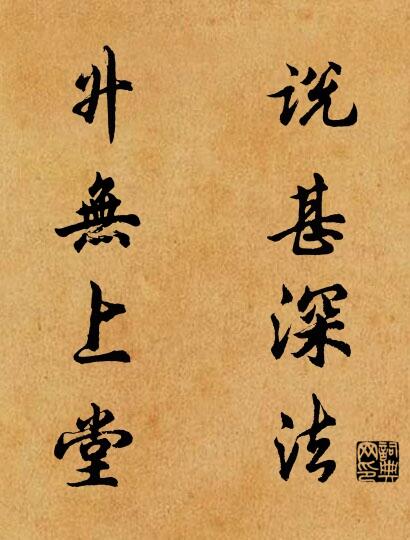 说甚深法
升無上堂
詞典網印